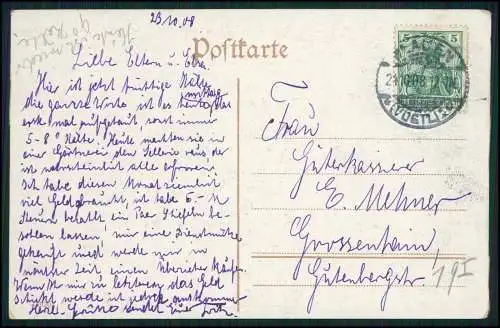 23.10.08
Postkarte
Liebe Eltern u. Elsa.
Hier ist jetzt tüchtige Kälte
die ganze Woche ist es heute
erste mal aufgetaut, sonst immer
5-8° Kälte. Heute machten sie in
einer Gärtnerei den Sellerie raus, der
ist wahrscheinlich alle erfroren.
Ich habe diesen Monat ziemlich
viel Geld gebraucht, ich habe 5.- M
Steuern bezahlt ein Paar Stiefeln be-
sohlen lassen, mir eine Dienstmütze
gekauft und werde mir in
nächster Zeit einen Überzieher kaufen.
Wenn ihr mir zu letztwen das Geld
schickt werde ich auskommen
Herzl. Grüße sendet Euer
5 5
PLAUEN
23.10.08
(VOGTL.)
Frau
Güterkassierer
E. Mehner
Grossenhain,
Gutenbergstr. 19 I